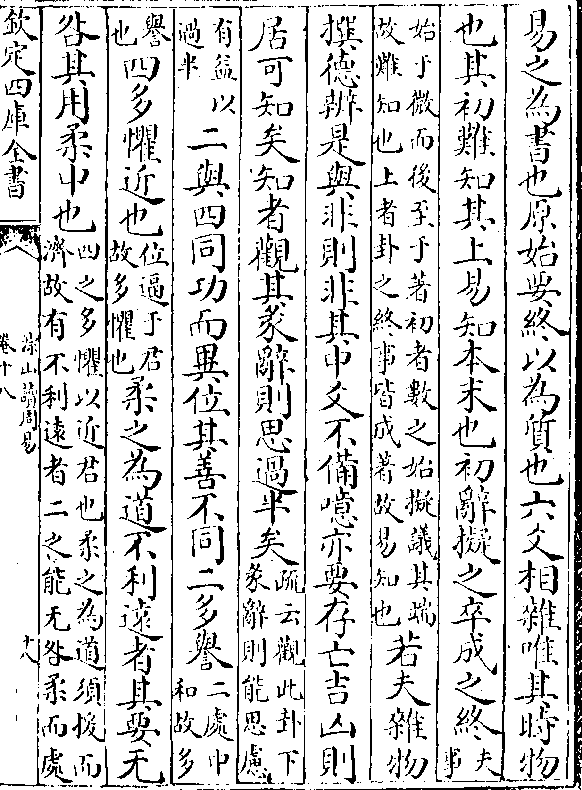 易之為書也原始要終以為質也六爻相雜唯其時物
也其初難知其上易知本末也初辭擬之卒成之終夫事
始于微而後至于著初者數之始擬議其端
故難知也上者卦之終事皆成著故易知也
若夫雜物
撰德辨是與非則非其中爻不備噫亦要存亡吉凶則
居可知矣知者觀其彖辭則思過半矣
疏云觀此卦下
彖辭則能思慮
有益以
過半
二與四同功而異位其善不同二多譽
二處中
和故多
譽
也
四多懼近也
位逼于君
故多懼也
柔之為道不利遠者其要无
咎其用柔中也
四之多懼以近君也柔之為道須援而
濟故有不利遠者二之能无咎柔而處
欽定四庫全書
淙山讀周易
卷十八
十八